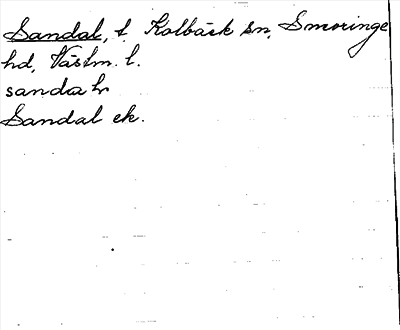 Sandal, t Kolbäck sn, Smoringe
hd, Västm. l.
sanda hr
Sandal ek.